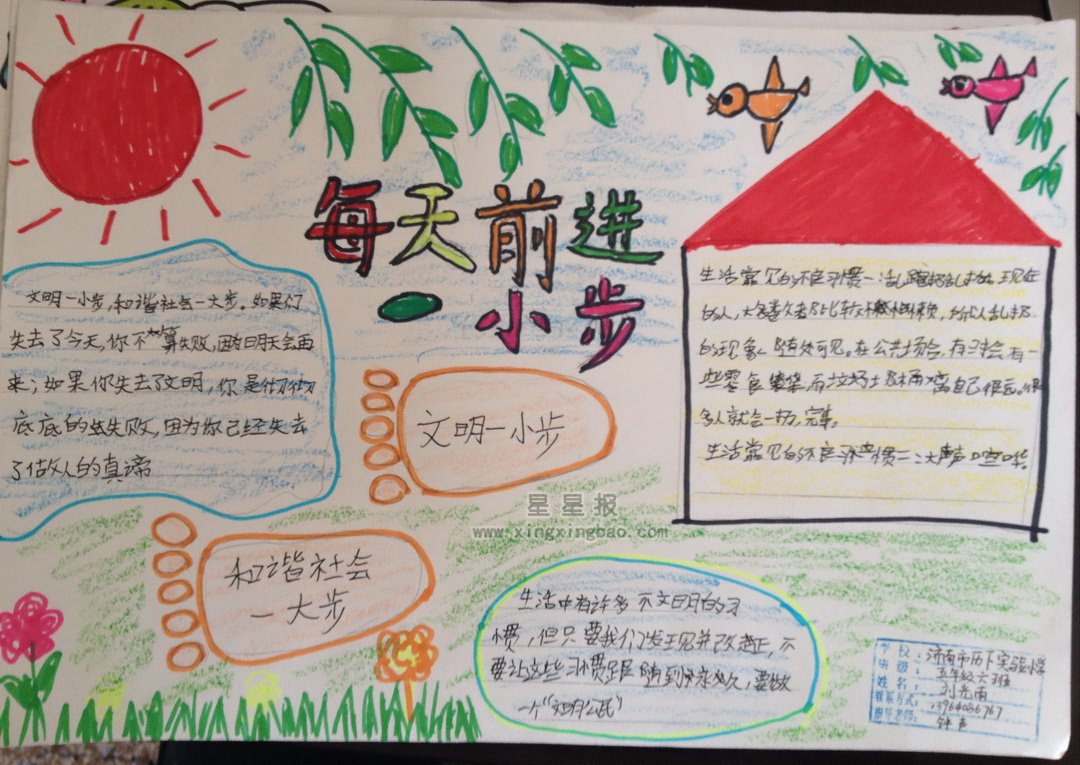 每天前进
一小步
文明一小步，和谐社会一大步。如果你
失去了今天，你不算失败，因为明天会再
来；如果你失去了文明，你是彻彻
底底的失败，因为你已经失去
了做人的真谛
文明一小步
和谐社会
一大步
生活常见的不良习惯一：乱跑乱扔，现在
的人，大多数人都比较懒，所以乱扔
的现象，随处可见。在公共场合，有时会有一
些零食袋，而垃圾桶离自己很远。很
多人就会一扔，完事。
生活常见的不良习惯二：大声喧哗
星星报
www.xingxingbao.com
生活中有许多不文明的习
惯，但只要我们发现并改正，不
要让这些习惯跟随到永久，要做
一个“文明公民”
学校：济南市历下实验小学
班级：五年级六班
姓名：
联系方式：13964086767
指导老师：